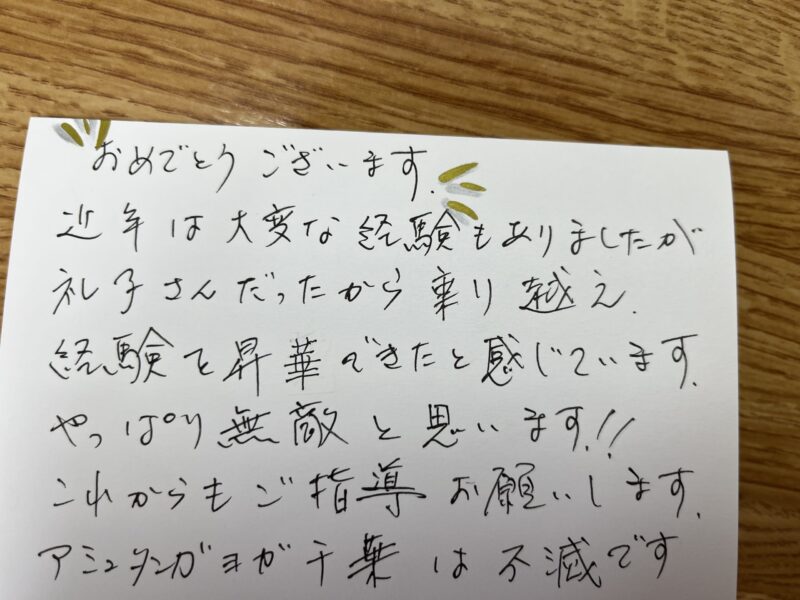 おめでとうございます.
近年は大変な経験もありましたが
礼子さんだったから乗り越え.
経験を昇華できたと感じています.
やっぱり無敵と思います!!
これからもご指導お願いします.
アシュタンガヨガ千葉は不滅です